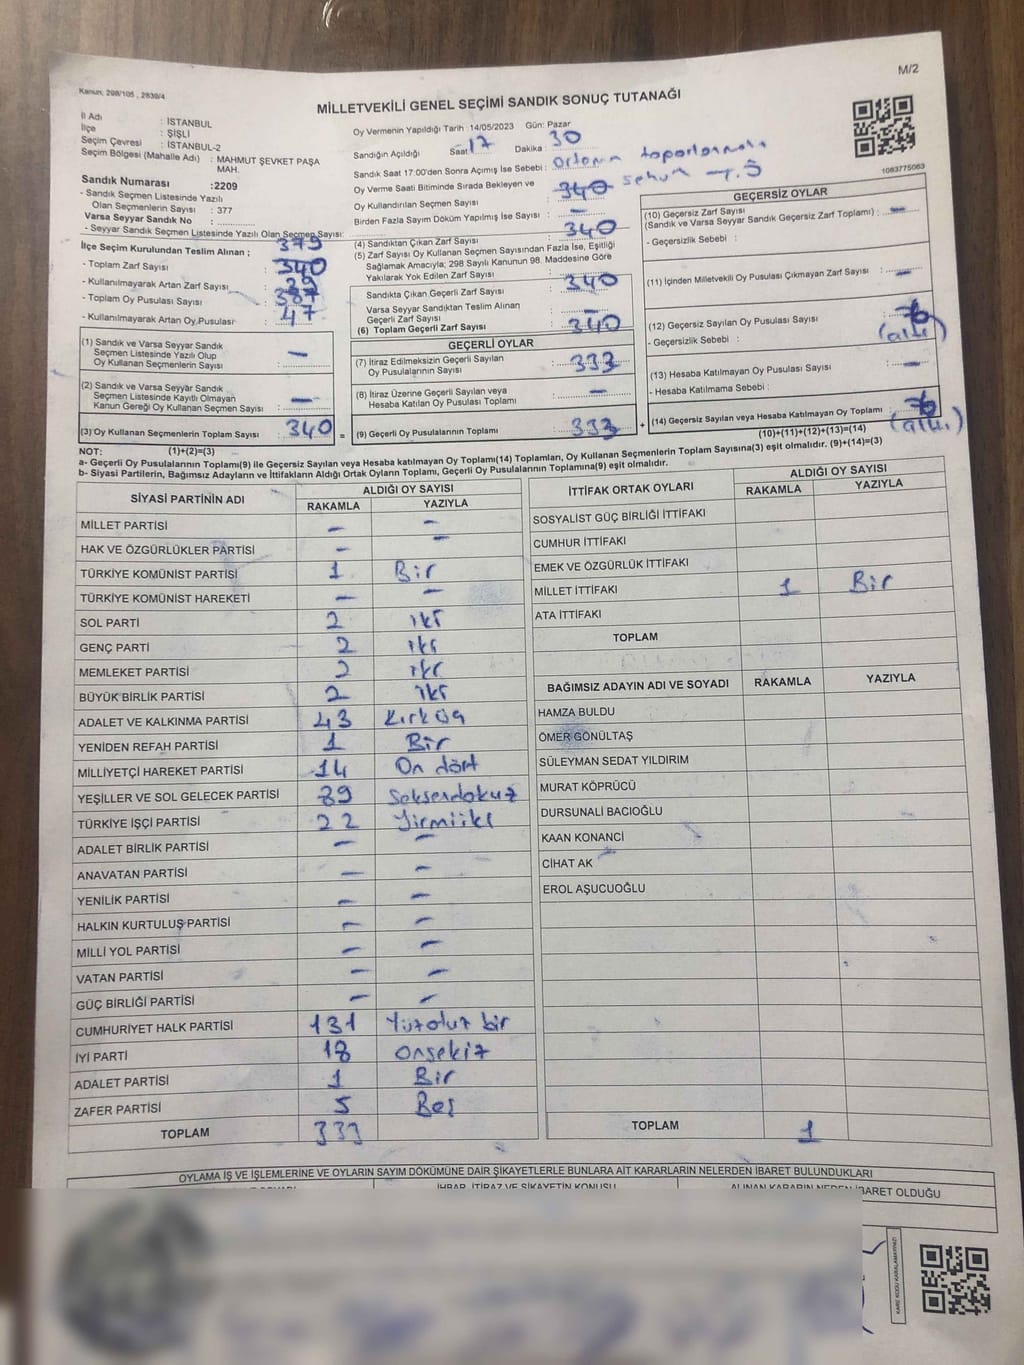 M/2
Kanun; 298/105 , 2839/4
MİLLETVEKİLİ GENEL SEÇİMİ SANDIK SONUÇ TUTANAĞI
1083775063
İl Adı : İSTANBUL
İlçe : ŞİŞLİ
Seçim Çevresi : İSTANBUL-2
Seçim Bölgesi (Mahalle Adı) : MAHMUT ŞEVKET PAŞA MAH.
Sandık Numarası : 2209
- Sandık Seçmen Listesinde Yazılı
Olan Seçmenlerin Sayısı : 377
Varsa Seyyar Sandık No :
- Seyyar Sandık Seçmen Listesinde Yazılı Olan Seçmen Sayısı:
Oy Vermenin Yapıldığı Tarih :14/05/2023 Gün: Pazar
Sandığın Açıldığı Saat 17 Dakika : 30
Sandık Saat 17:00'den Sonra Açımış İse Sebebi : Ortamın
Oy Verme Saati Bitiminde Sırada Bekleyen ve
Oy Kullandırılan Seçmen Sayısı : 340
Birden Fazla Sayım Döküm Yapılmış İse Sayısı : –
İlçe Seçim Kurulundan Teslim Alınan ; 379
- Toplam Zarf Sayısı : 340
- Kullanılmayarak Artan Zarf Sayısı : 39
- Toplam Oy Pusulası Sayısı : 387
- Kullanılmayarak Artan Oy Pusulası : 47
(1) Sandık ve Varsa Seyyar Sandık
Seçmen Listesinde Yazılı Olup
Oy Kullanan Seçmenlerin Sayısı : –
(2) Sandık ve Varsa Seyyar Sandık
Seçmen Listesinde Kayıtlı Olmayan
Kanun Gereği Oy Kullanan Seçmen Sayısı : –
(3) Oy Kullanan Seçmenlerin Toplam Sayısı : 340 =
(4) Sandıktan Çıkan Zarf Sayısı : 340
(5) Zarf Sayısı Oy Kullanan Seçmen Sayısından Fazla İse, Eşitliği
Sağlamak Amacıyla; 298 Sayılı Kanunun 98. Maddesine Göre
Yakılarak Yok Edilen Zarf Sayısı :
Sandıkta Çıkan Geçerli Zarf Sayısı : 340
Varsa Seyyar Sandıktan Teslim Alınan
Geçerli Zarf Sayısı : –
(6) Toplam Geçerli Zarf Sayısı : 340
GEÇERLİ OYLAR
(7) İtiraz Edilmeksizin Geçerli Sayılan
Oy Pusulalarının Sayısı : 333
(8) İtiraz Üzerine Geçerli Sayılan veya
Hesaba Katılan Oy Pusulası Toplamı : –
(9) Geçerli Oy Pusulalarının Toplamı : 333 +
GEÇERSİZ OYLAR
(10) Geçersiz Zarf Sayısı
(Sandık ve Varsa Seyyar Sandık Geçersiz Zarf Toplamı) : –
- Geçersizlik Sebebi :
(11) İçinden Milletvekili Oy Pusulası Çıkmayan Zarf Sayısı : –
(12) Geçersiz Sayılan Oy Pusulası Sayısı : 6
- Geçersizlik Sebebi : (altı)
(13) Hesaba Katılmayan Oy Pusulası Sayısı : –
- Hesaba Katılmama Sebebi :
(14) Geçersiz Sayılan veya Hesaba Katılmayan Oy Toplamı : 6
(altı)
NOT: (1)+(2)=(3) (10)+(11)+(12)+(13)=(14)
a- Geçerli Oy Pusulalarının Toplamı(9) ile Geçersiz Sayılan veya Hesaba katılmayan Oy Toplamı(14) Toplamları, Oy Kullanan Seçmenlerin Toplam Sayısına(3) eşit olmalıdır. (9)+(14)=(3)
b- Siyasi Partilerin, Bağımsız Adayların ve İttifakların Aldığı Ortak Oyların Toplamı, Geçerli Oy Pusulalarının Toplamına(9) eşit olmalıdır.
SİYASİ PARTİNİN ADI ALDIĞI OY SAYISI
RAKAMLA YAZIYLA
MİLLET PARTİSİ – –
HAK VE ÖZGÜRLÜKLER PARTİSİ – –
TÜRKİYE KOMÜNİST PARTİSİ 1 Bir
TÜRKİYE KOMÜNİST HAREKETİ – –
SOL PARTİ 2 iki
GENÇ PARTİ 2 iki
MEMLEKET PARTİSİ 2 iki
BÜYÜK BİRLİK PARTİSİ 2 iki
ADALET VE KALKINMA PARTİSİ 43 Kırküç
YENİDEN REFAH PARTİSİ 1 Bir
MİLLİYETÇİ HAREKET PARTİSİ 14 On dört
YEŞİLLER VE SOL GELECEK PARTİSİ 89 Seksendokuz
TÜRKİYE İŞÇİ PARTİSİ 22 Yirmiiki
ADALET BİRLİK PARTİSİ – –
ANAVATAN PARTİSİ – –
YENİLİK PARTİSİ – –
HALKIN KURTULUŞ PARTİSİ – –
MİLLİ YOL PARTİSİ – –
VATAN PARTİSİ – –
GÜÇ BİRLİĞİ PARTİSİ – –
CUMHURİYET HALK PARTİSİ 131 Yüzotuz bir
İYİ PARTİ 18 Onsekiz
ADALET PARTİSİ 1 Bir
ZAFER PARTİSİ 5 Beş
TOPLAM 333
İTTİFAK ORTAK OYLARI ALDIĞI OY SAYISI
RAKAMLA YAZIYLA
SOSYALİST GÜÇ BİRLİĞİ İTTİFAKI
CUMHUR İTTİFAKI
EMEK VE ÖZGÜRLÜK İTTİFAKI
MİLLET İTTİFAKI 1 Bir
ATA İTTİFAKI
TOPLAM
BAĞIMSIZ ADAYIN ADI VE SOYADI RAKAMLA YAZIYLA
HAMZA BULDU
ÖMER GÖNÜLTAŞ
SÜLEYMAN SEDAT YILDIRIM
MURAT KÖPRÜCÜ
DURSUNALİ BACIOĞLU
KAAN KONANCİ
CİHAT AK
EROL AŞUCUOĞLU
TOPLAM 1
OYLAMA İŞ VE İŞLEMLERİNE VE OYLARIN SAYIM DÖKÜMÜNE DAİR ŞİKAYETLERLE BUNLARA AİT KARARLARIN NELERDEN İBARET BULUNDUKLARI
İHBAR, İTİRAZ VE ŞİKAYETİN KONUSU ALINAN KARARIN NEDEN İBARET OLDUĞU
KARE KODU KARALAMAYINIZ!